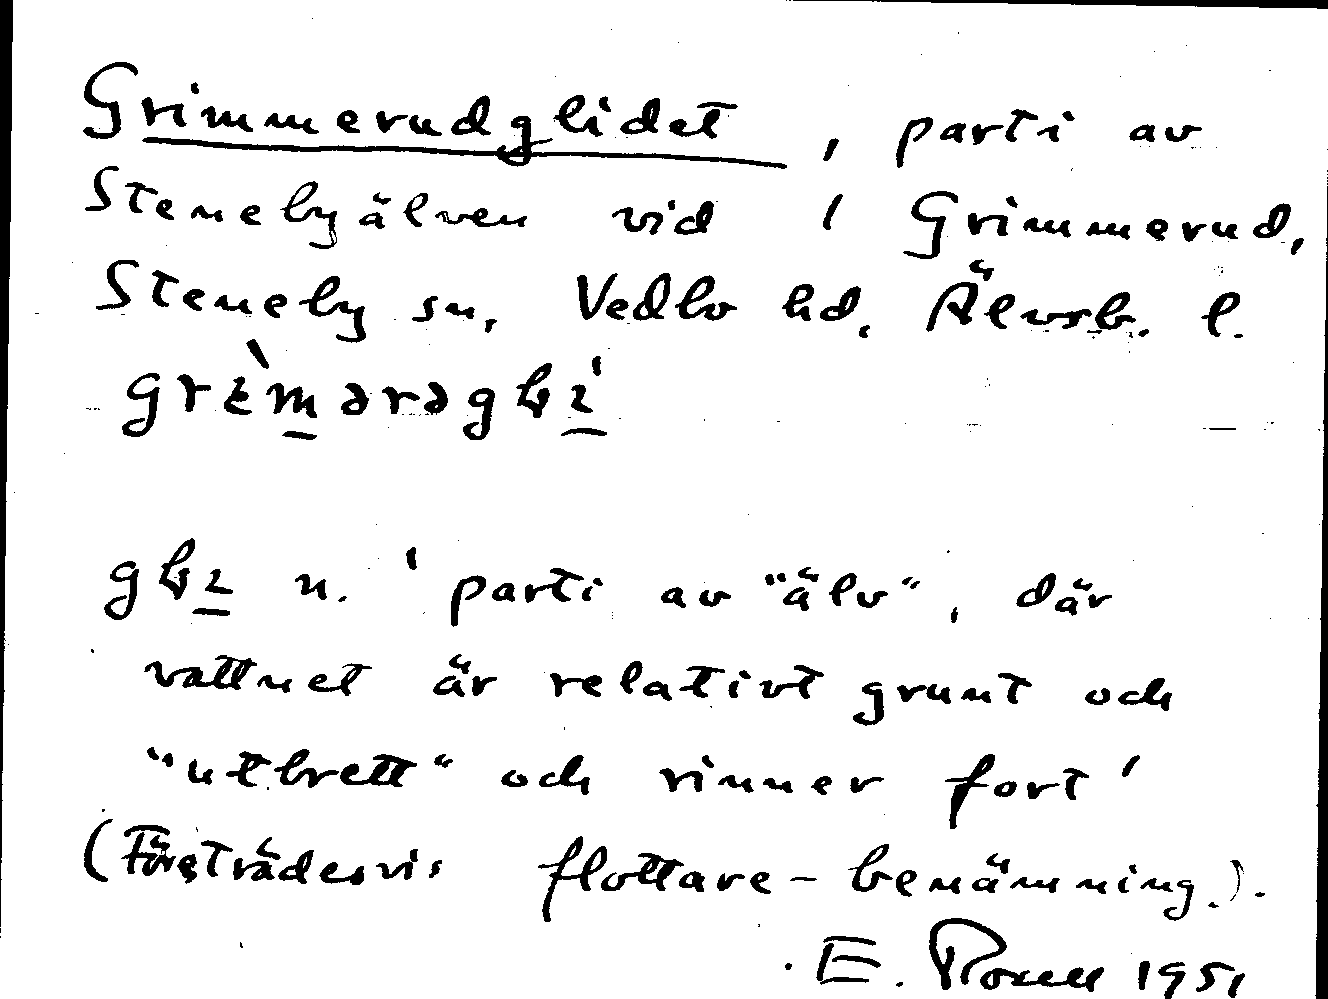 Grimmerudglidet, parti av
Stenebyälven vid / Grimmerud,
Steneby sn, Vedbo hd. Älvsb. l.
n. 'parti av "älv", där
vattnet är relativt grunt och
"utbrett" och rinner fort'
(Företrädesvis flottare-benämning.).
E. Rosell 1951